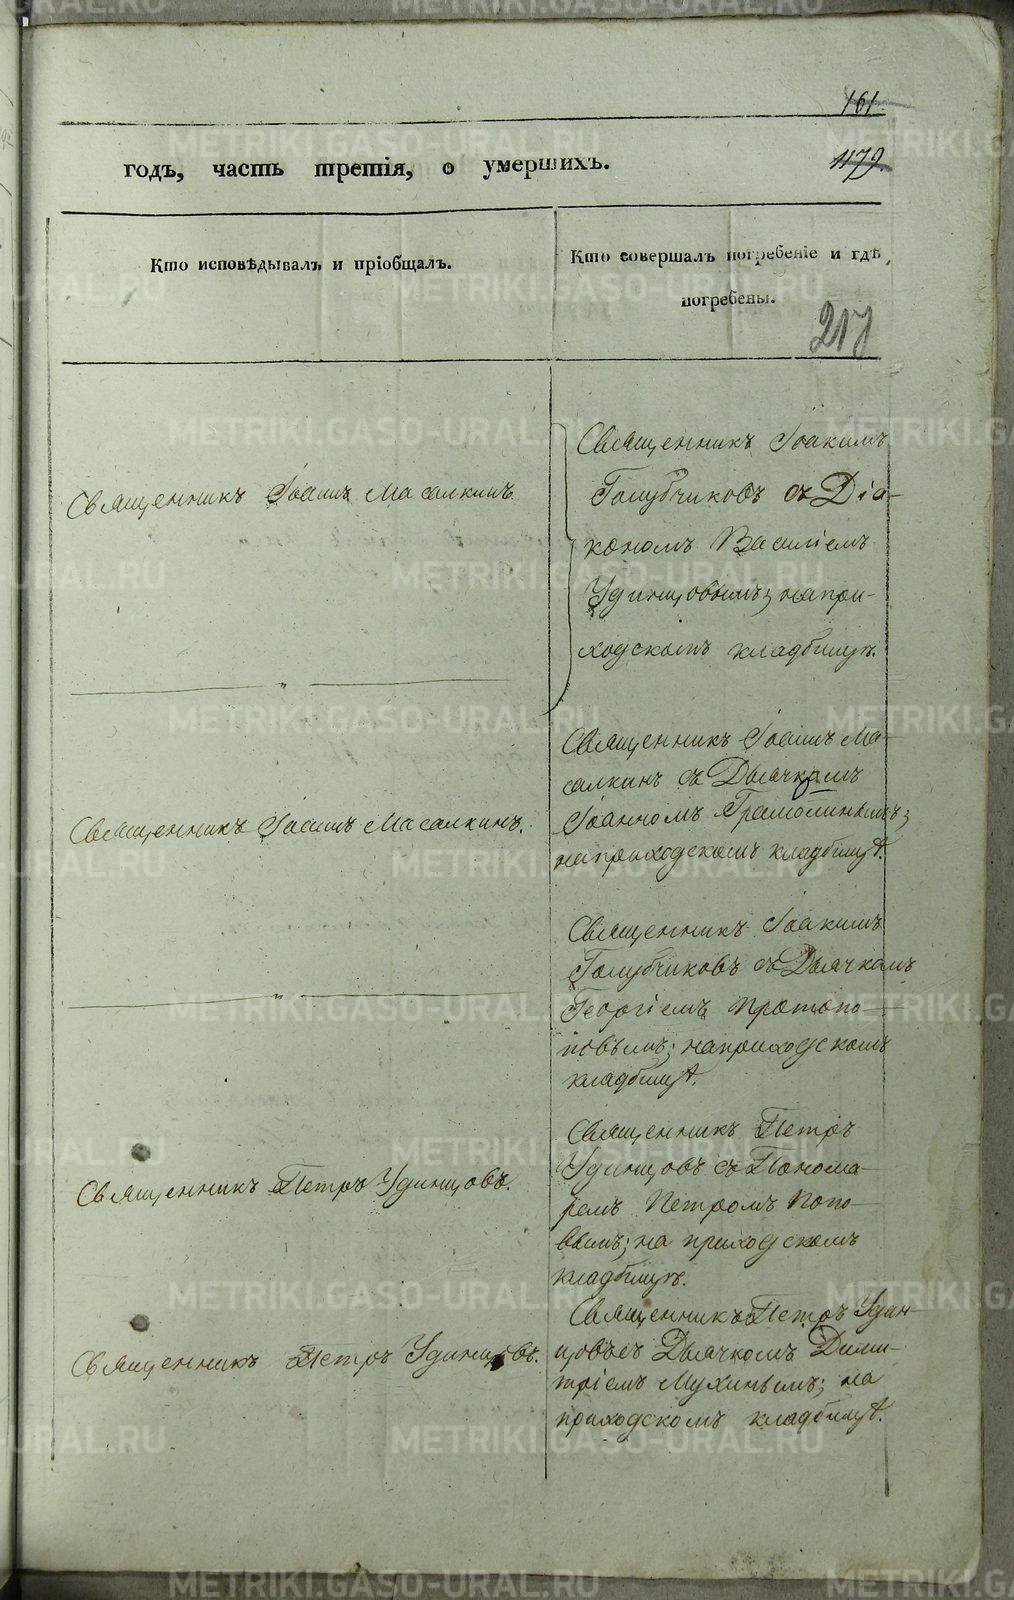 161.
годъ, часть третія, о умершихъ.
1179.
Кто исповѣдывалъ и пріобщалъ.
Кто совершалъ погребеніе и гдѣ
погребены.
217
Священникъ Іоаннъ Масалкинъ.
Священникъ Іоакимъ
Голубчиковъ съ Діа-
кономъ Василіемъ
Удинцовымъ; на при-
ходскомъ кладбищѣ.
Священникъ Іоаннъ Масалкинъ.
Священникъ Іоаннъ Ма-
салкинъ съ Дьячкомъ
Іоанномъ Грамолинымъ;
на приходскомъ кладбищѣ.
Священникъ Іоакимъ
Голубчиковъ съ Дьячкомъ
Георгіемъ Протопо-
повымъ; на приходскомъ
кладбищѣ.
Священникъ Петръ Удинцовъ.
Священникъ Петръ
Удинцовъ съ Понома-
ремъ Петромъ Попо-
вымъ; на приходскомъ
кладбищѣ.
Священникъ Петръ Удинцовъ.
Священникъ Петръ Удин-
цовъ съ Дьячкомъ Дими-
тріемъ Мухинымъ; на
приходскомъ кладбищѣ.
METRIKI.GASO-URAL.RU